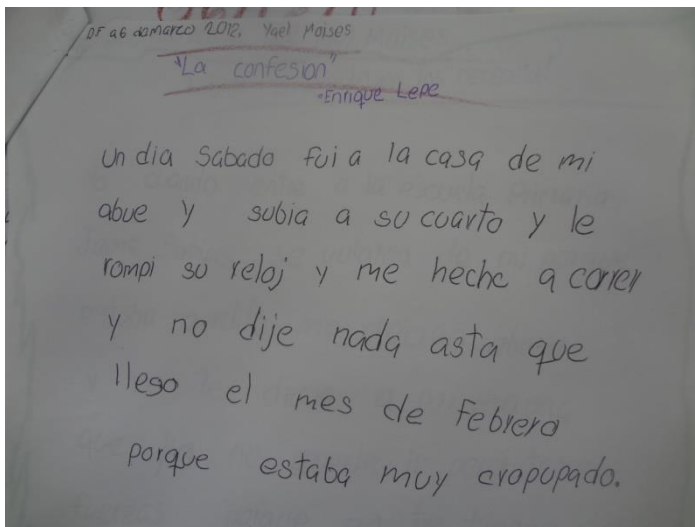 DF a 6 de marzo 2012, Yael Moises
"La confesion"
•Enrique Lepe
un dia Sabado fui a la casa de mi
abue y subia a su cuarto y le
rompi su reloj y me heche a correr
y no dije nada asta que
llego el mes de Febrero
porque estaba muy cropupado.